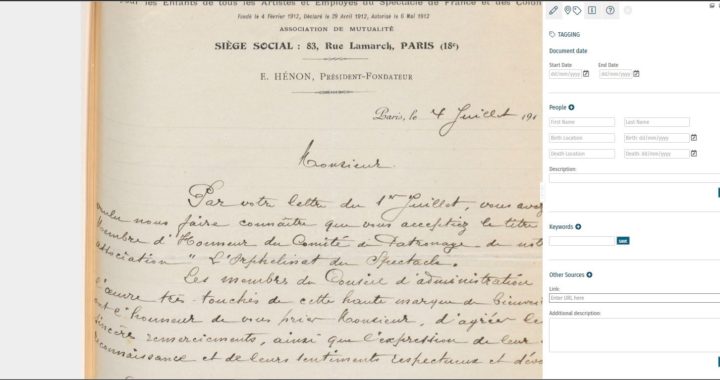 Pour les Enfants de tous les Artistes et Employés du Spectacle de France et des Colon
Fondé le 4 Février 1912, Déclaré le 29 Avril 1912, Autorisé le 6 Mai 1912
ASSOCIATION DE MUTUALITÉ
SIÈGE SOCIAL : 83, Rue Lamarck, PARIS (18e)
E. HÉNON, PRÉSIDENT-FONDATEUR
Paris, le 4 Juillet 191
Monsieur
Par votre lettre du 1er Juillet, vous avez
voulu nous faire connaître que vous acceptiez le titre
Membre d'Honneur du Comité de Patronage de not
association " L'Orphelinat du Spectacle.
Les membres du Conseil d'administration
d'œuvre très touchés de cette haute marque de bienvei
ont l'honneur de vous prier Monsieur, d'agréer le
sincère remerciements, ainsi que l'expression de leur
reconnaissance et de leurs sentiments respectueux et dévo
TAGGING
Document date
Start Date
End Date
dd/mm/yyyy
dd/mm/yyyy
People
First Name
Last Name
Birth Location
Birth: dd/mm/yyyy
Death Location
Death: dd/mm/yyyy
Description:
Keywords
save
Other Sources
Link:
Enter URL here
Additional description: